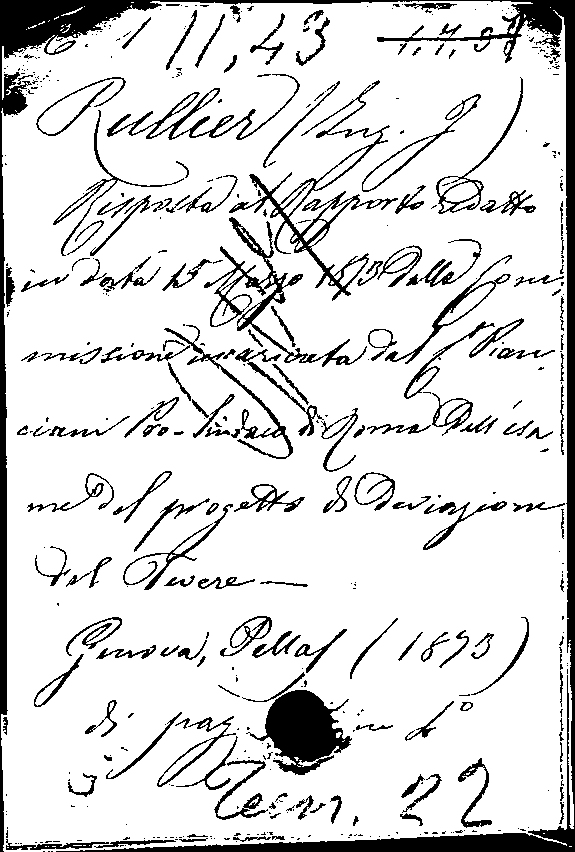 C. 1 11,43 1,7,3
Rullier (Ing. J)
Risposta al Rapporto redatto
in data 15 Marzo 1873 dalla Com-
missione incaricata dal C.te Pian-
ciani Pro-Sindaco di Roma dell'esa-
me del progetto di deviazione
del Tevere —
Genova, Pellas (1873)
di pag. in 4º
22